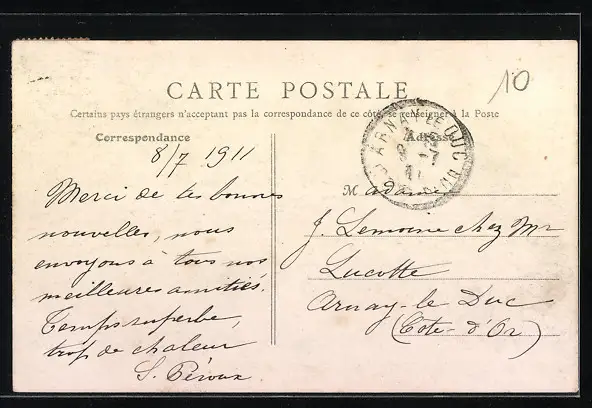 10
CARTE POSTALE
Certains pays étrangers n'acceptant pas la correspondance de ce côté, se renseigner à la Poste
Correspondance
8/7 1911
Merci de tes bonnes
nouvelles, nous
envoyons à tous nos
meilleures amitiés.
Temps superbe,
trop de chaleur
S. Péroux
Adresse
ARNAY-LE-DUC
Madame
J. Lemoine chez Mr
Lucotte
Arnay-le Duc
(Côte-d'Or)